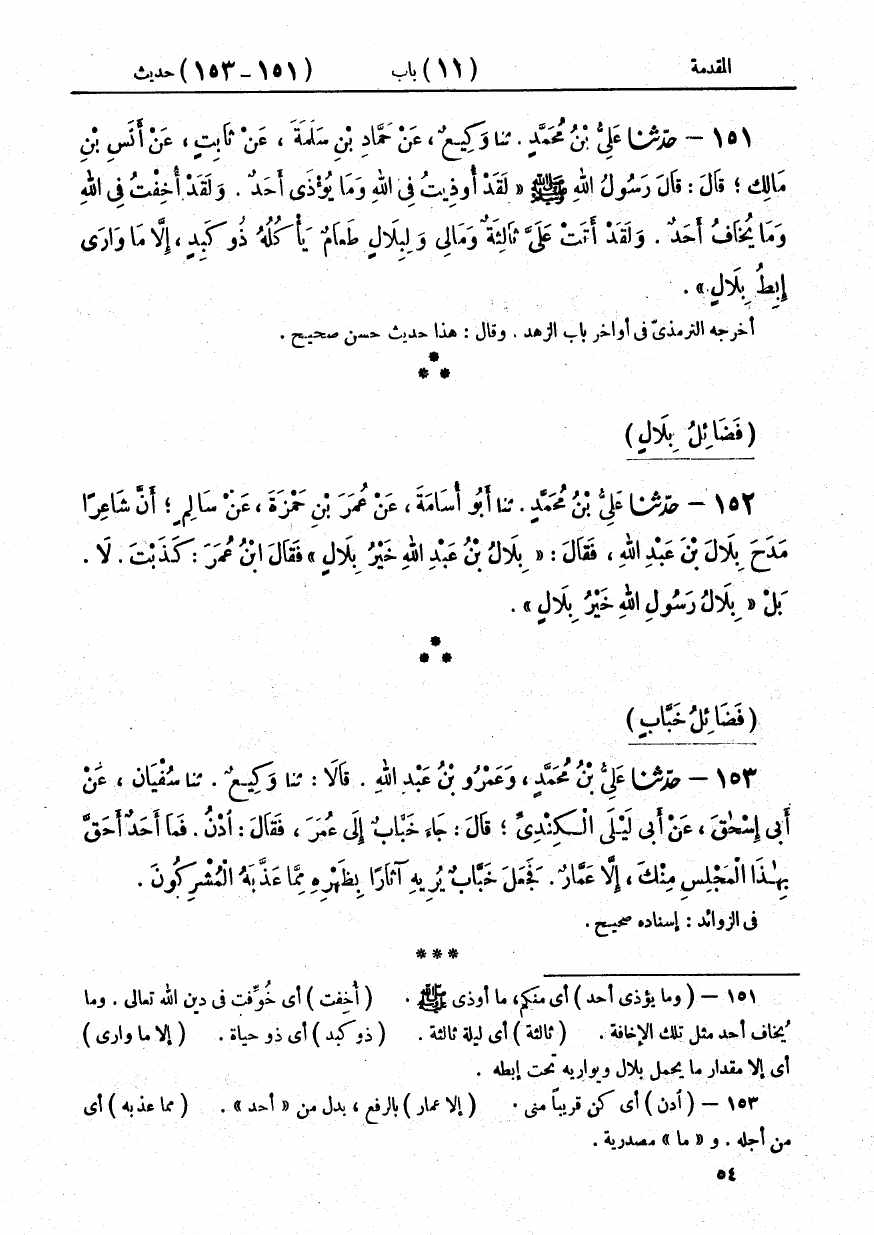 المقدمة (١١) باب (١٥١ – ١٥٣) حديث
١٥١ – حدّثنا عَلِيُّ بْنُ مُحَمَّدٍ . ثنا وَكِيعٌ ، عَنْ حَمَّادِ بْنِ سَلَمَةَ ، عَنْ ثَابِتٍ ، عَنْ أَنَسِ بْنِ
مَالِكٍ ؛ قَالَ : قَالَ رَسُولُ اللهِ ﷺ « لَقَدْ أُوذِيتُ فِى اللهِ وَمَا يُؤْذَى أَحَدٌ . وَلَقَدْ أُخِفْتُ فِى اللهِ
وَمَا يُخَافُ أَحَدٌ . وَلَقَدْ أَتَتْ عَلَىَّ ثَالِثَةٌ وَمَالِى وَلِبِلَالٍ طَعَامٌ يَأْكُلُهُ ذُو كَبِدٍ ، إِلَّا مَا وَارَى
إِبِطُ بِلَالٍ » .
أخرجه الترمذىّ فى أواخر باب الزهد . وقال : هذا حديث حسن صحيح .
*
* *
( فَضَائِلُ بِلَالٍ )
١٥٢ – حدّثنا عَلِيُّ بْنُ مُحَمَّدٍ . ثنا أَبُو أُسَامَةَ ، عَنْ عُمَرَ بْنِ حَمْزَةَ ، عَنْ سَالِمٍ ؛ أَنَّ شَاعِرًا
مَدَحَ بِلَالَ بْنَ عَبْدِ اللهِ ، فَقَالَ : « بِلَالُ بْنُ عَبْدِ اللهِ خَيْرُ بِلَالٍ » فَقَالَ ابْنُ عُمَرَ : كَذَبْتَ . لَا .
بَلْ « بِلَالُ رَسُولِ اللهِ خَيْرُ بِلَالٍ » .
*
* *
( فَضَائِلُ خَبَّابٍ )
١٥٣ – حدّثنا عَلِيُّ بْنُ مُحَمَّدٍ ، وَعَمْرُو بْنُ عَبْدِ اللهِ . قَالَا : ثنا وَكِيعٌ . ثنا سُفْيَان ، عَنْ
أَبِى إِسْحٰقَ ، عَنْ أَبِى لَيْلَى الْكِنْدِىِّ ؛ قَالَ : جَاءَ خَبَّابٌ إِلَى عُمَرَ ، فَقَالَ : ادْنُ . فَمَا أَحَدٌ أَحَقَّ
بِهٰذَا الْمَجْلِسِ مِنْكَ ، إِلَّا عَمَّارٌ . فَجَعَلَ خَبَّابٌ يُرِيهِ آثَارًا بِظَهْرِهِ مِمَّا عَذَّبَهُ الْمُشْرِكُونَ .
فى الزوائد : إسناده صحيح .
* * *
١٥١ – ( وما يؤذى أحد ) أى منكم ، ما أوذى ﷺ . ( أُخِفت ) أى خُوِّفت فى دين الله تعالى . وما
يُخاف أحد مثل تلك الإخافة . ( ثالثة ) أى ليلة ثالثة . ( ذو كبد ) أى ذو حياة . ( إلا ما وارى )
أى إلا مقدار ما يحمل بلال ويواريه تحت إبطه .
١٥٣ – ( أدن ) أى كن قريباً منى . ( إلا عمار ) بالرفع ، بدل من « أحد » . ( مما عذبه ) أى
من أجله . و « ما » مصدرية .
٥٤